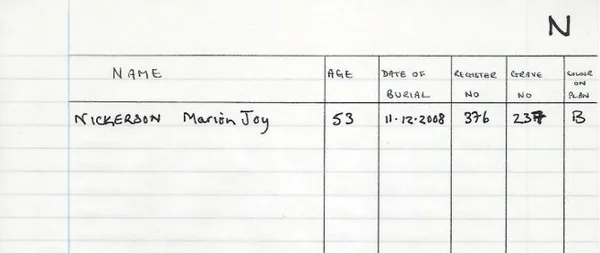 N
NAME AGE DATE OF BURIAL REGISTER NO GRAVE NO COLOUR ON PLAN
NICKERSON Marion Joy 53 11-12-2008 376 237 B